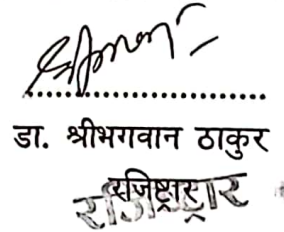 डा. श्रीभगवान ठाकुर
रजिष्ट्रार
रजिष्ट्रार